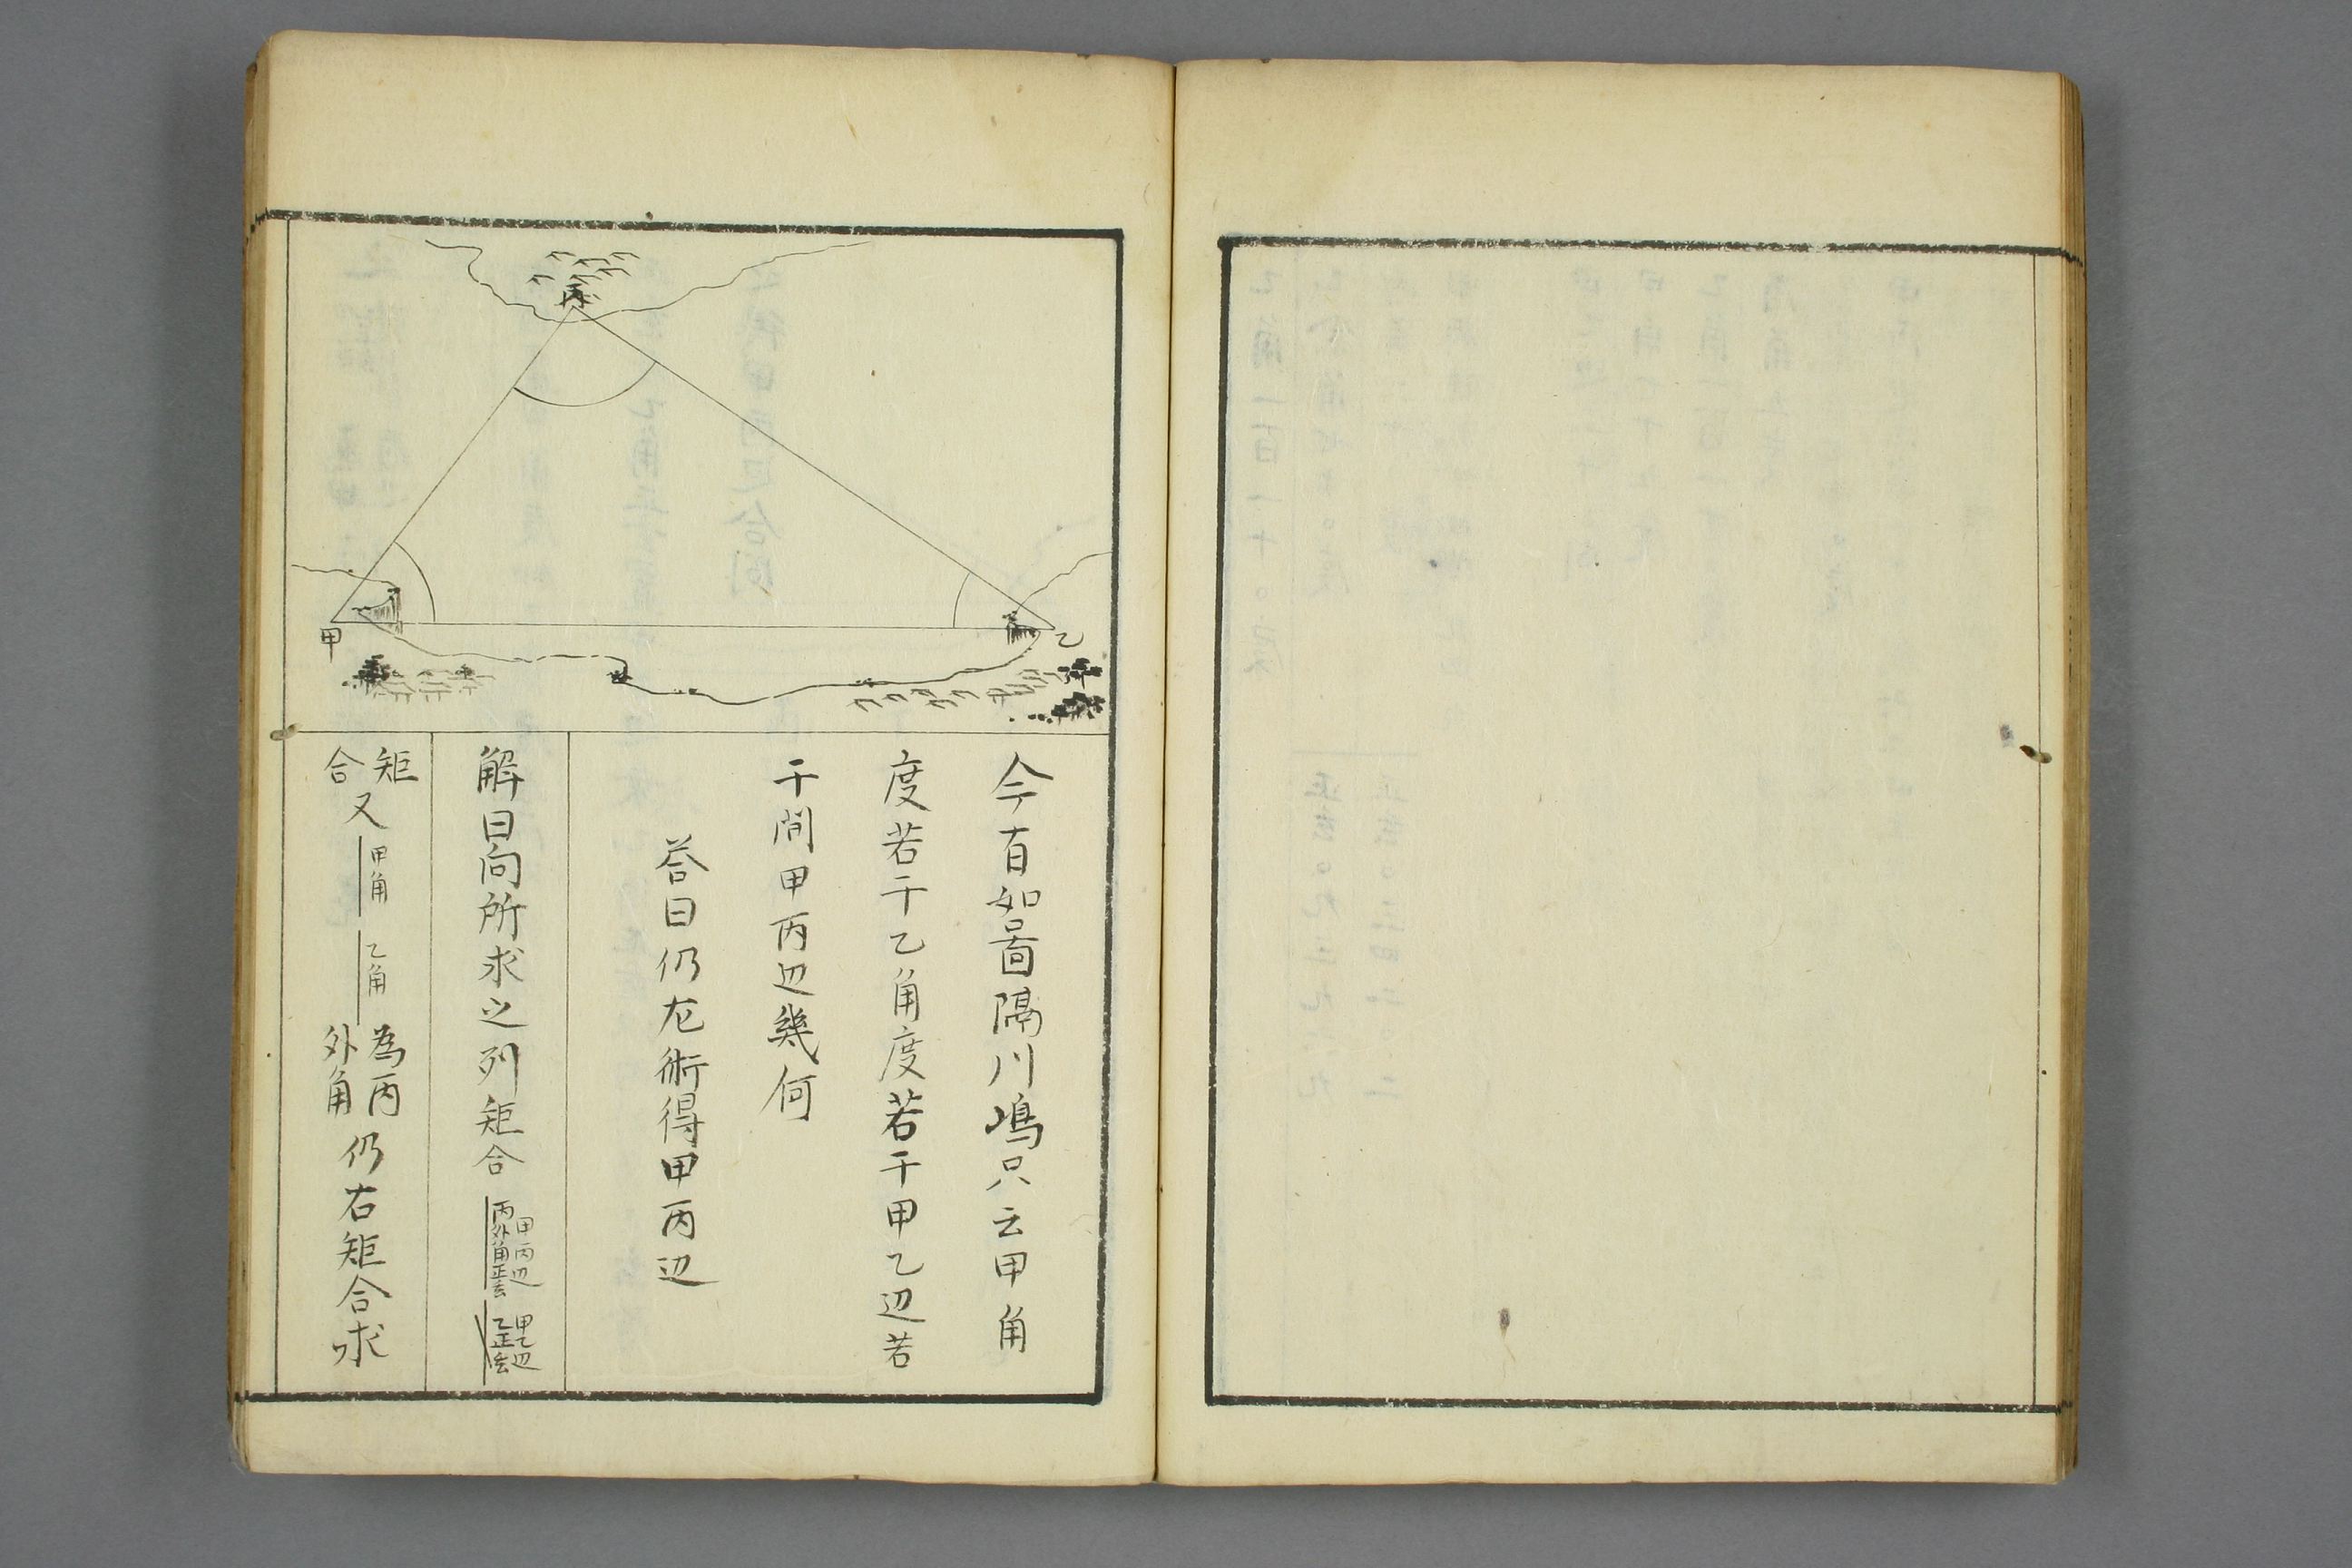 丙
甲
乙
今有如啚隔川嶋只云甲角
度若干乙角度若干甲乙辺若
干問甲丙辺幾何
荅曰仍尨術得甲丙辺
解曰向所求之列矩合
甲丙辺
丙外角正玄
甲乙辺
乙正玄
矩
合
又
甲角
乙角
為丙
外角
仍右矩合求